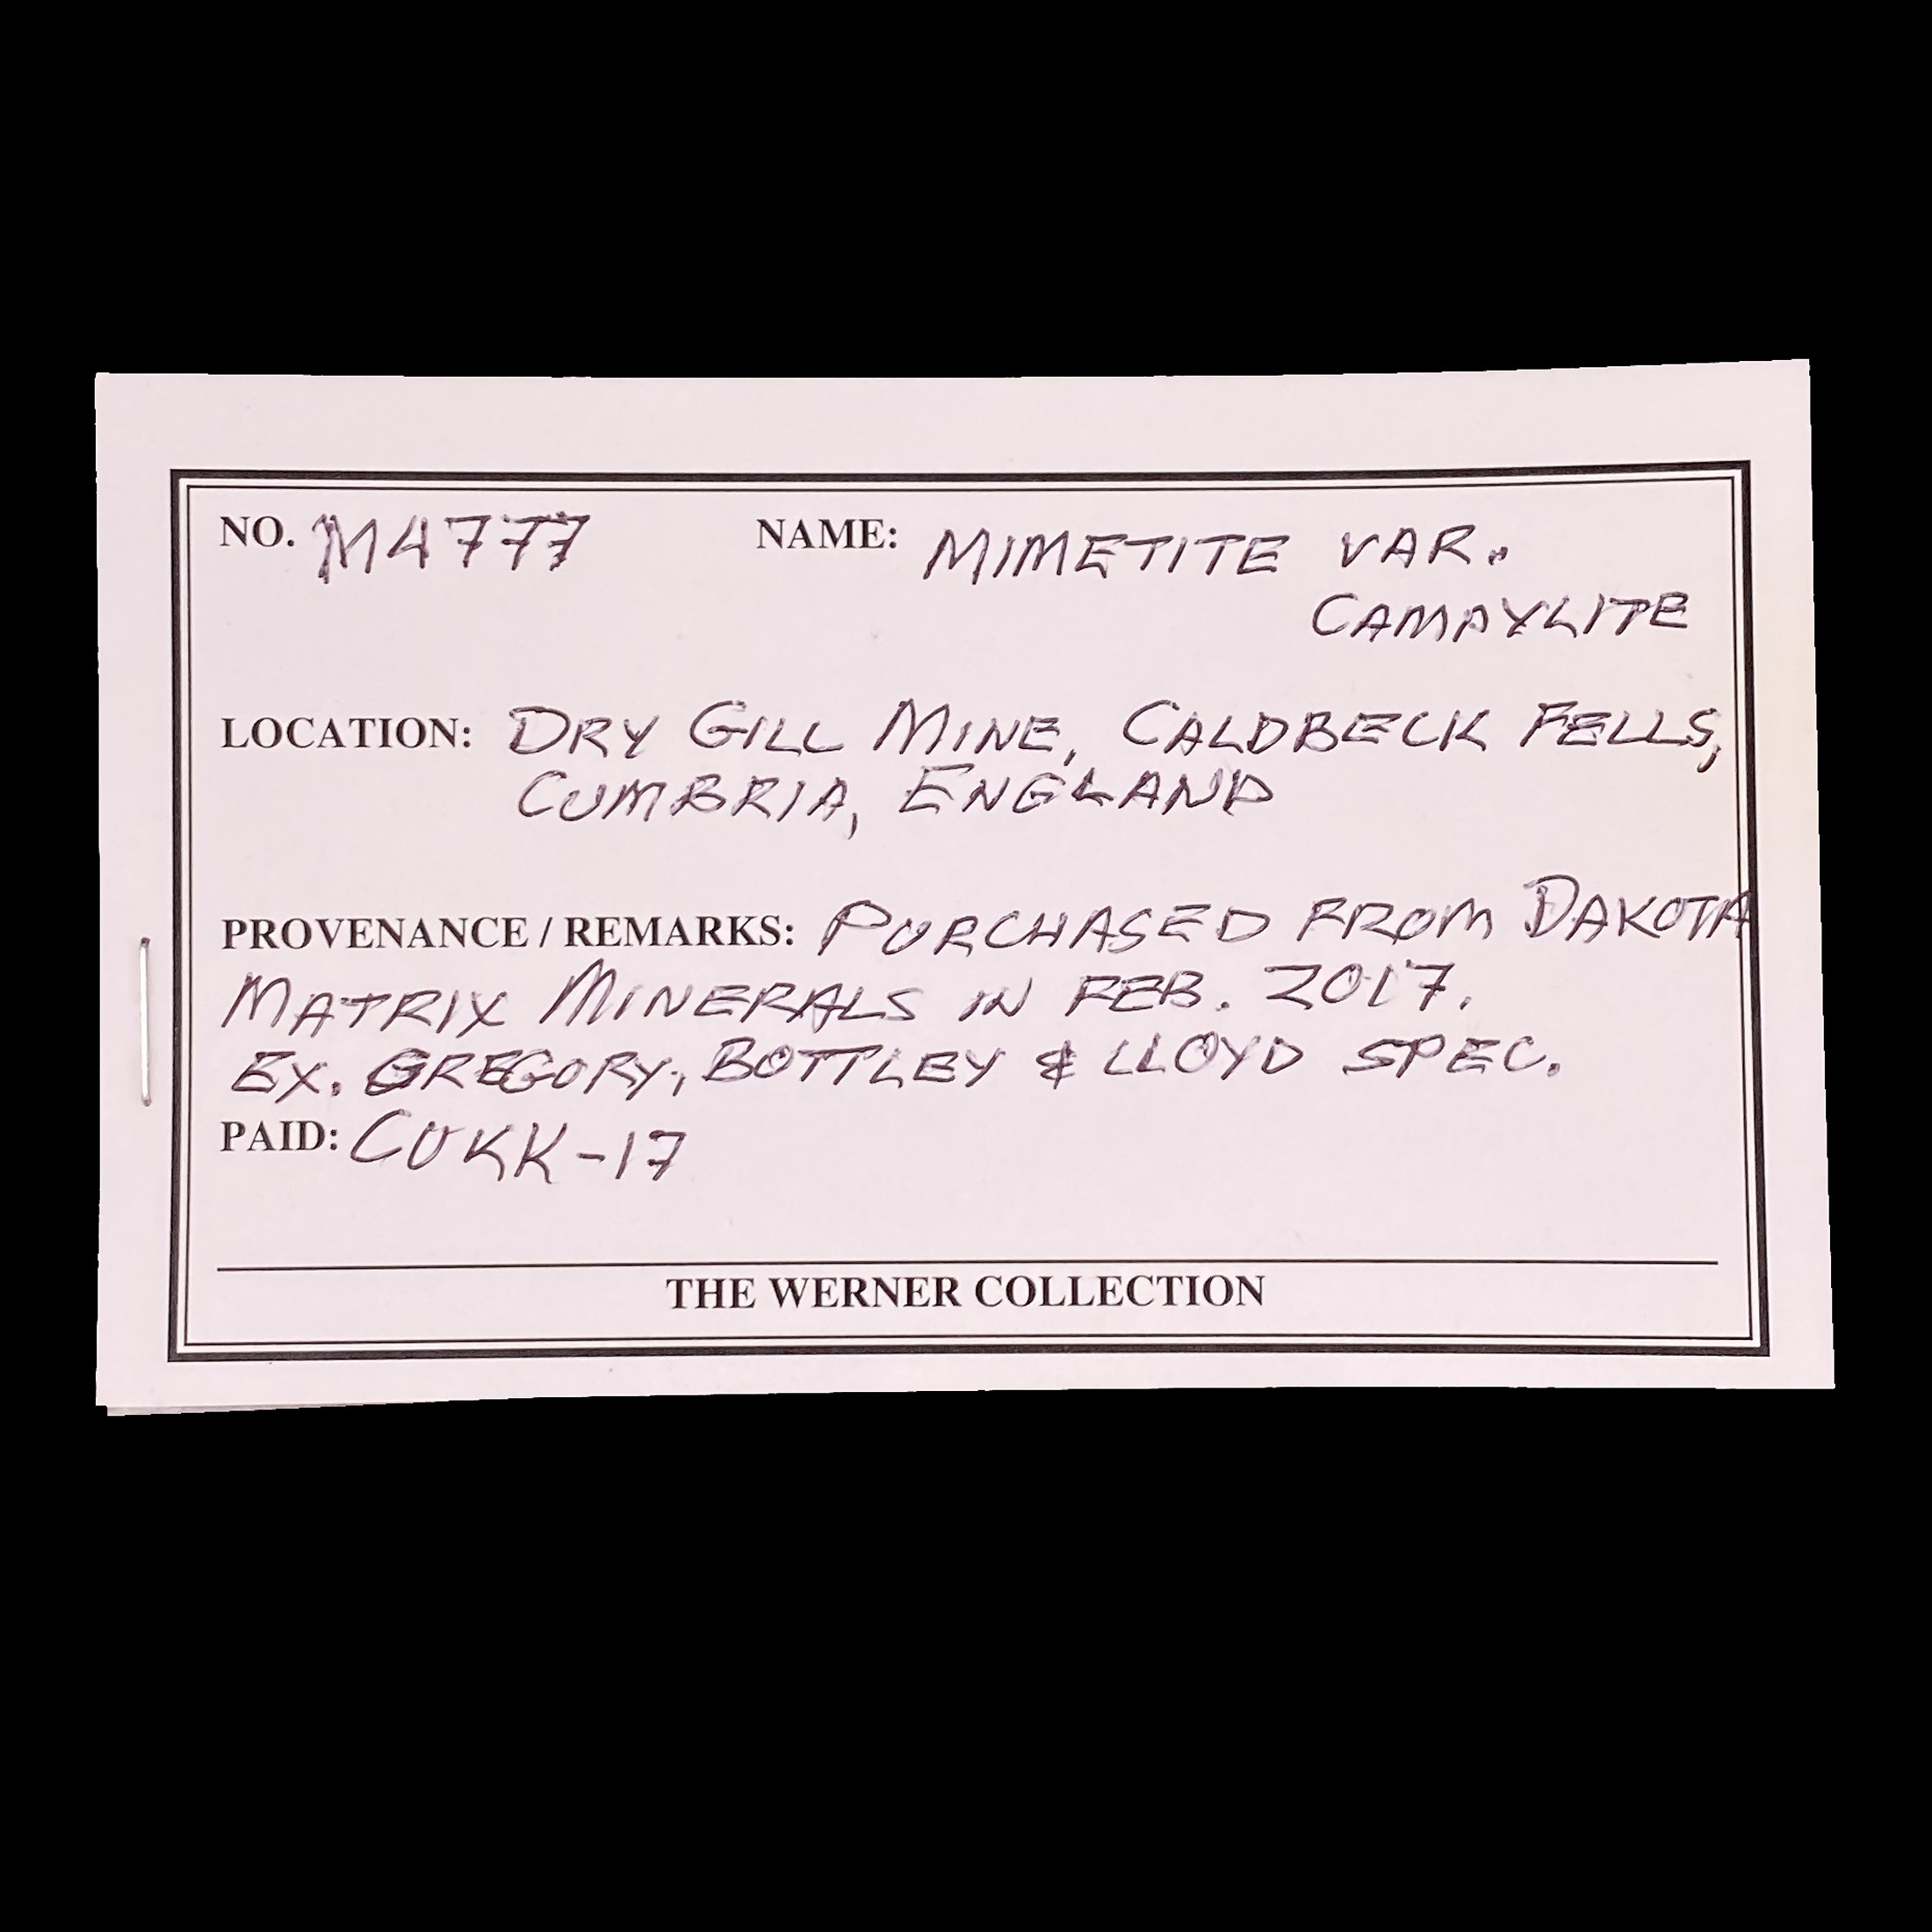 NO. M4777 NAME: MIMETITE VAR.
CAMAYLITE
LOCATION: DRY GILL MINE, CALDBECK FELLS,
CUMBRIA, ENGLAND
PROVENANCE / REMARKS: PURCHASED FROM DAKOTA
MATRIX MINERALS IN FEB. 2017.
EX. GREGORY, BOTTLEY & LLOYD SPEC.
PAID: CUKK-17
THE WERNER COLLECTION